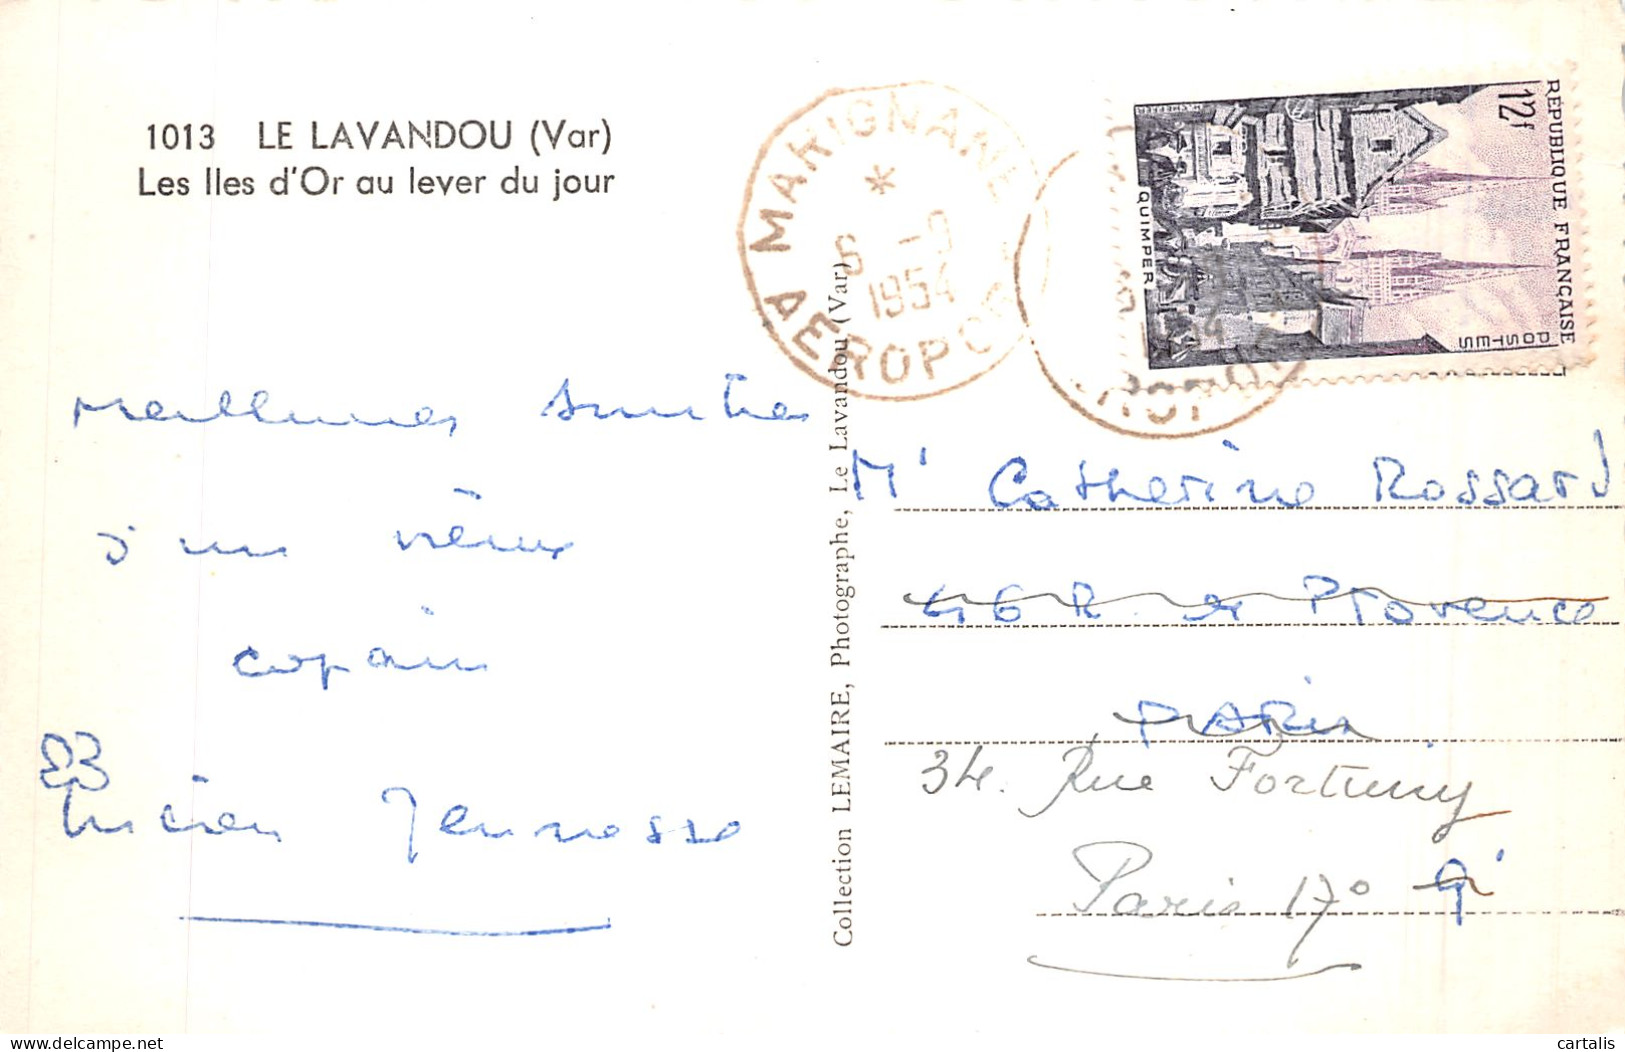 1013 LE LAVANDOU (Var)
Les Iles d'Or au lever du jour
MARIGNANE
*
1954
AEROPORT
RÉPUBLIQUE FRANÇAISE
12f
POSTES
QUIMPER
d'un vieux
copain
Lucien
Collection LEMAIRE, Photographe, Le Lavandou (Var)
Catherine Rossard
46 R de Provence
PARIS
34. Rue Fortuny
Paris 17° 9e
delcampe.net
cartalis